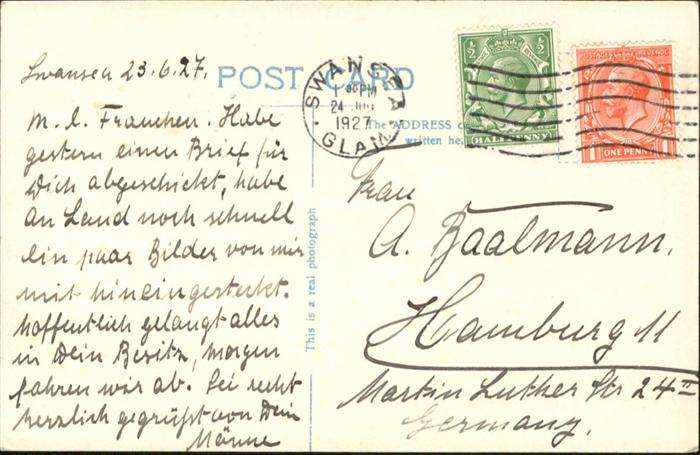 Swansea 23.6.27.
POST CARD
SWANSEA
1 30 PM
24 JUN
1927
GLAM
½ ½
HALFPENNY
POSTAGE & REVENUE
1 ONE PENNY 1
The ADDRESS
written he
M. l. Frauchen. Habe
gestern einen Brief für
Dich abgeschickt, habe
an Land noch schnell
ein paar Bilder von mir
mit hineingesteckt.
hoffentlich gelangt alles
in Dein Besitz, morgen
fahren wir ab. Sei recht
herzlich gegrüßt von Dein
Männe
This is a real photograph
Frau
A. Baalmann.
Hamburg 11
Martin Luther Str 24 II
Germany.